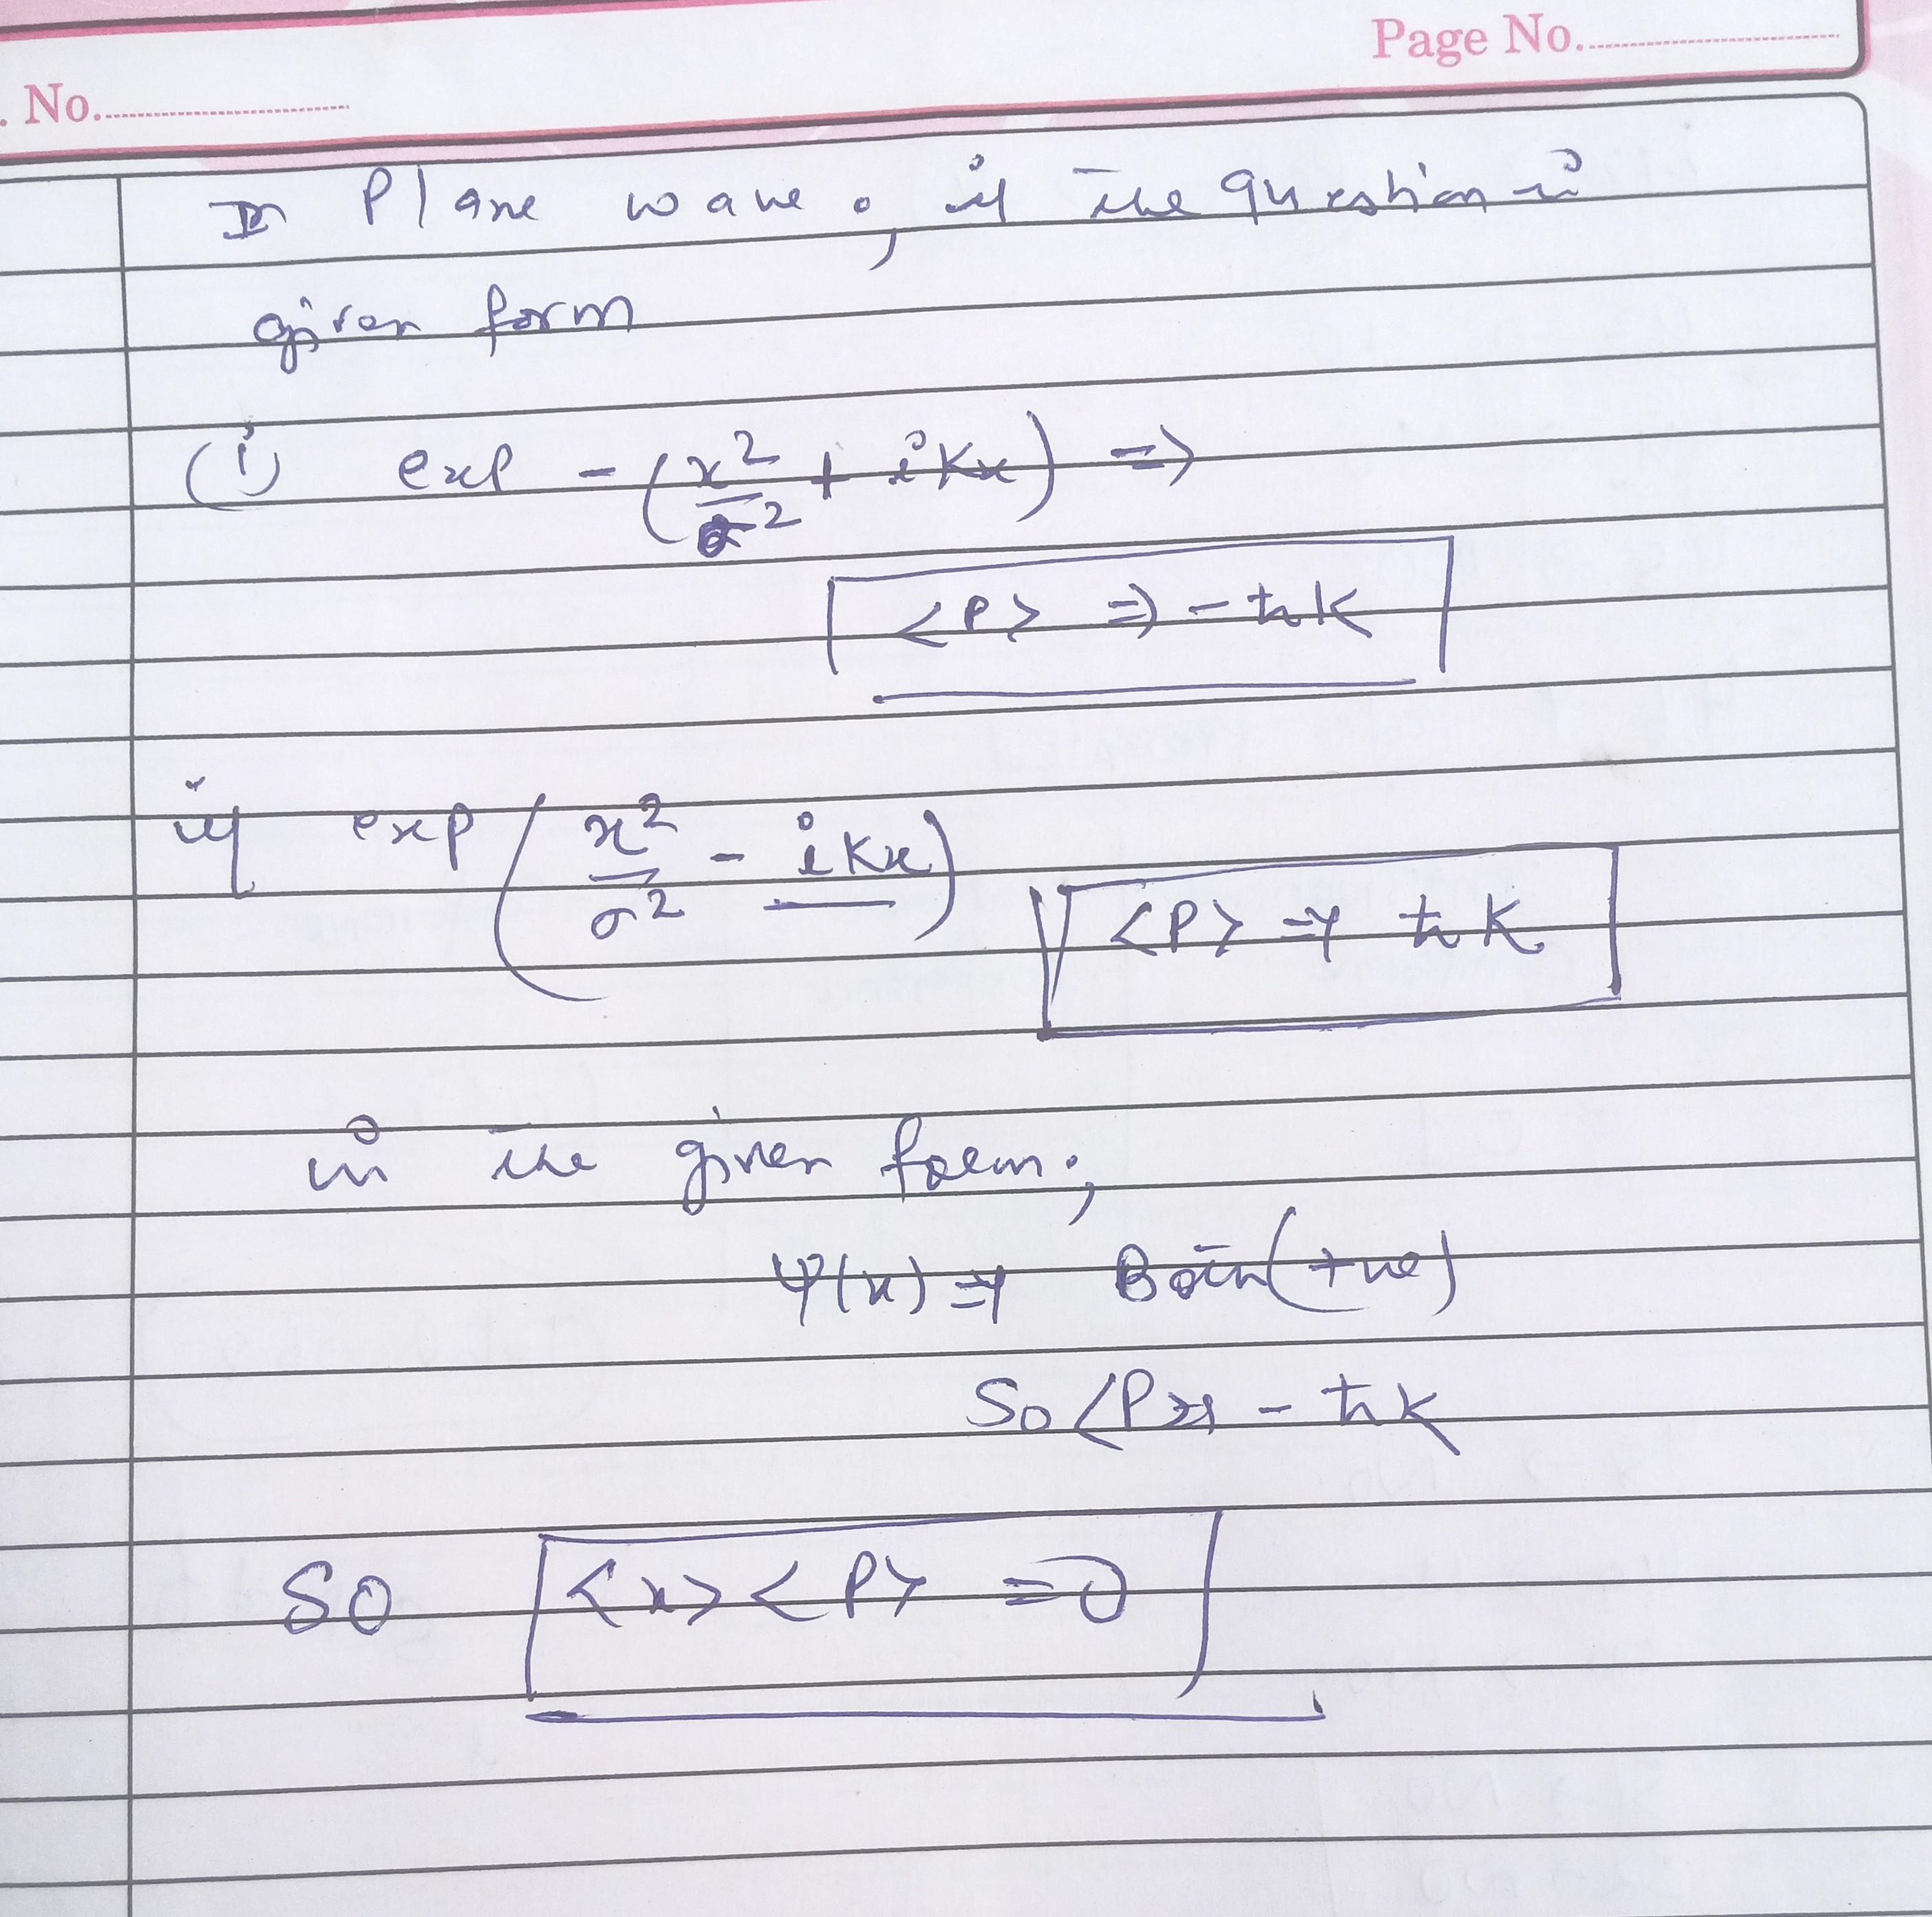 Page No.
. No.
In Plane wave, if the question is
given form
(i) exp -(x²/σ² + iKx) =>
<P> => -ħK
if exp (x²/σ² - iKx)
<P> => ħK
in the given form;
Ψ(x) => Both (+ve)
So <P> = - ħK
So <x> <P> = 0